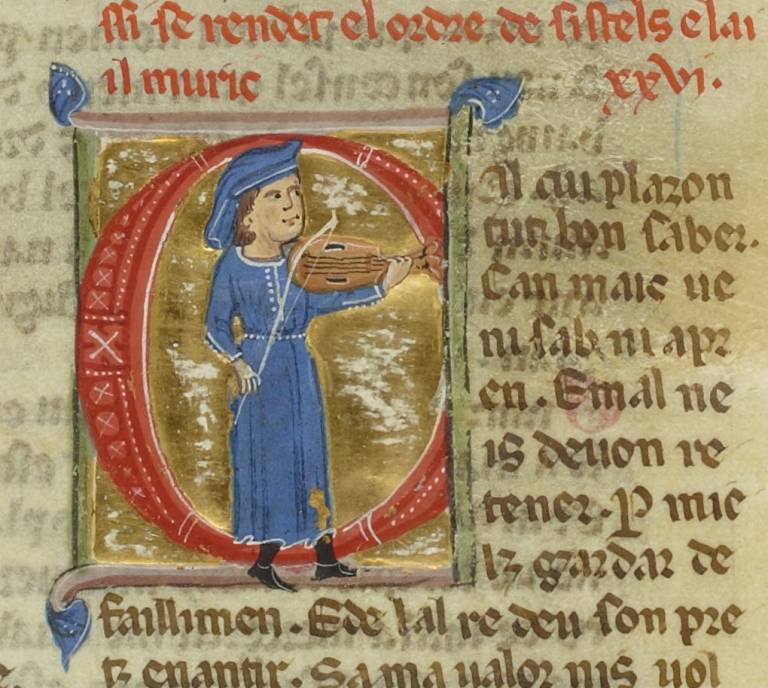 ssi se rendet el ordre de sistels e lai
il muric xxvi.
Al cui plazon
tut bon saber.
Can maic ue
ni sab ni apr
en. E mal ne
is deuon re
tener. P mie
lz gardar de
faillimen. E de lal re deu son pre
tz enantir. Sa ma ualor nis uol